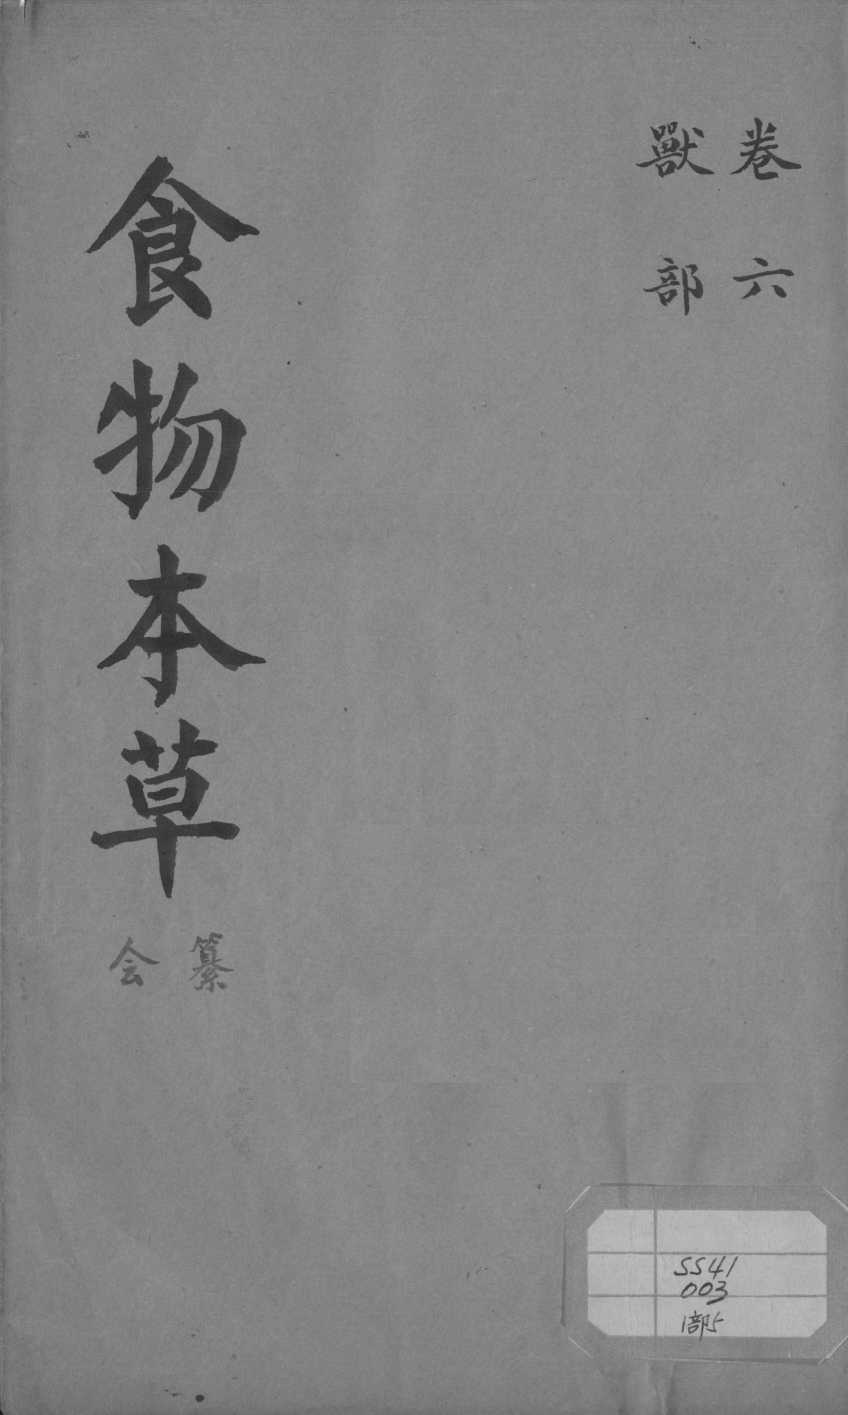 卷六
獸部
食物本草
會纂
SS41
003
1部5